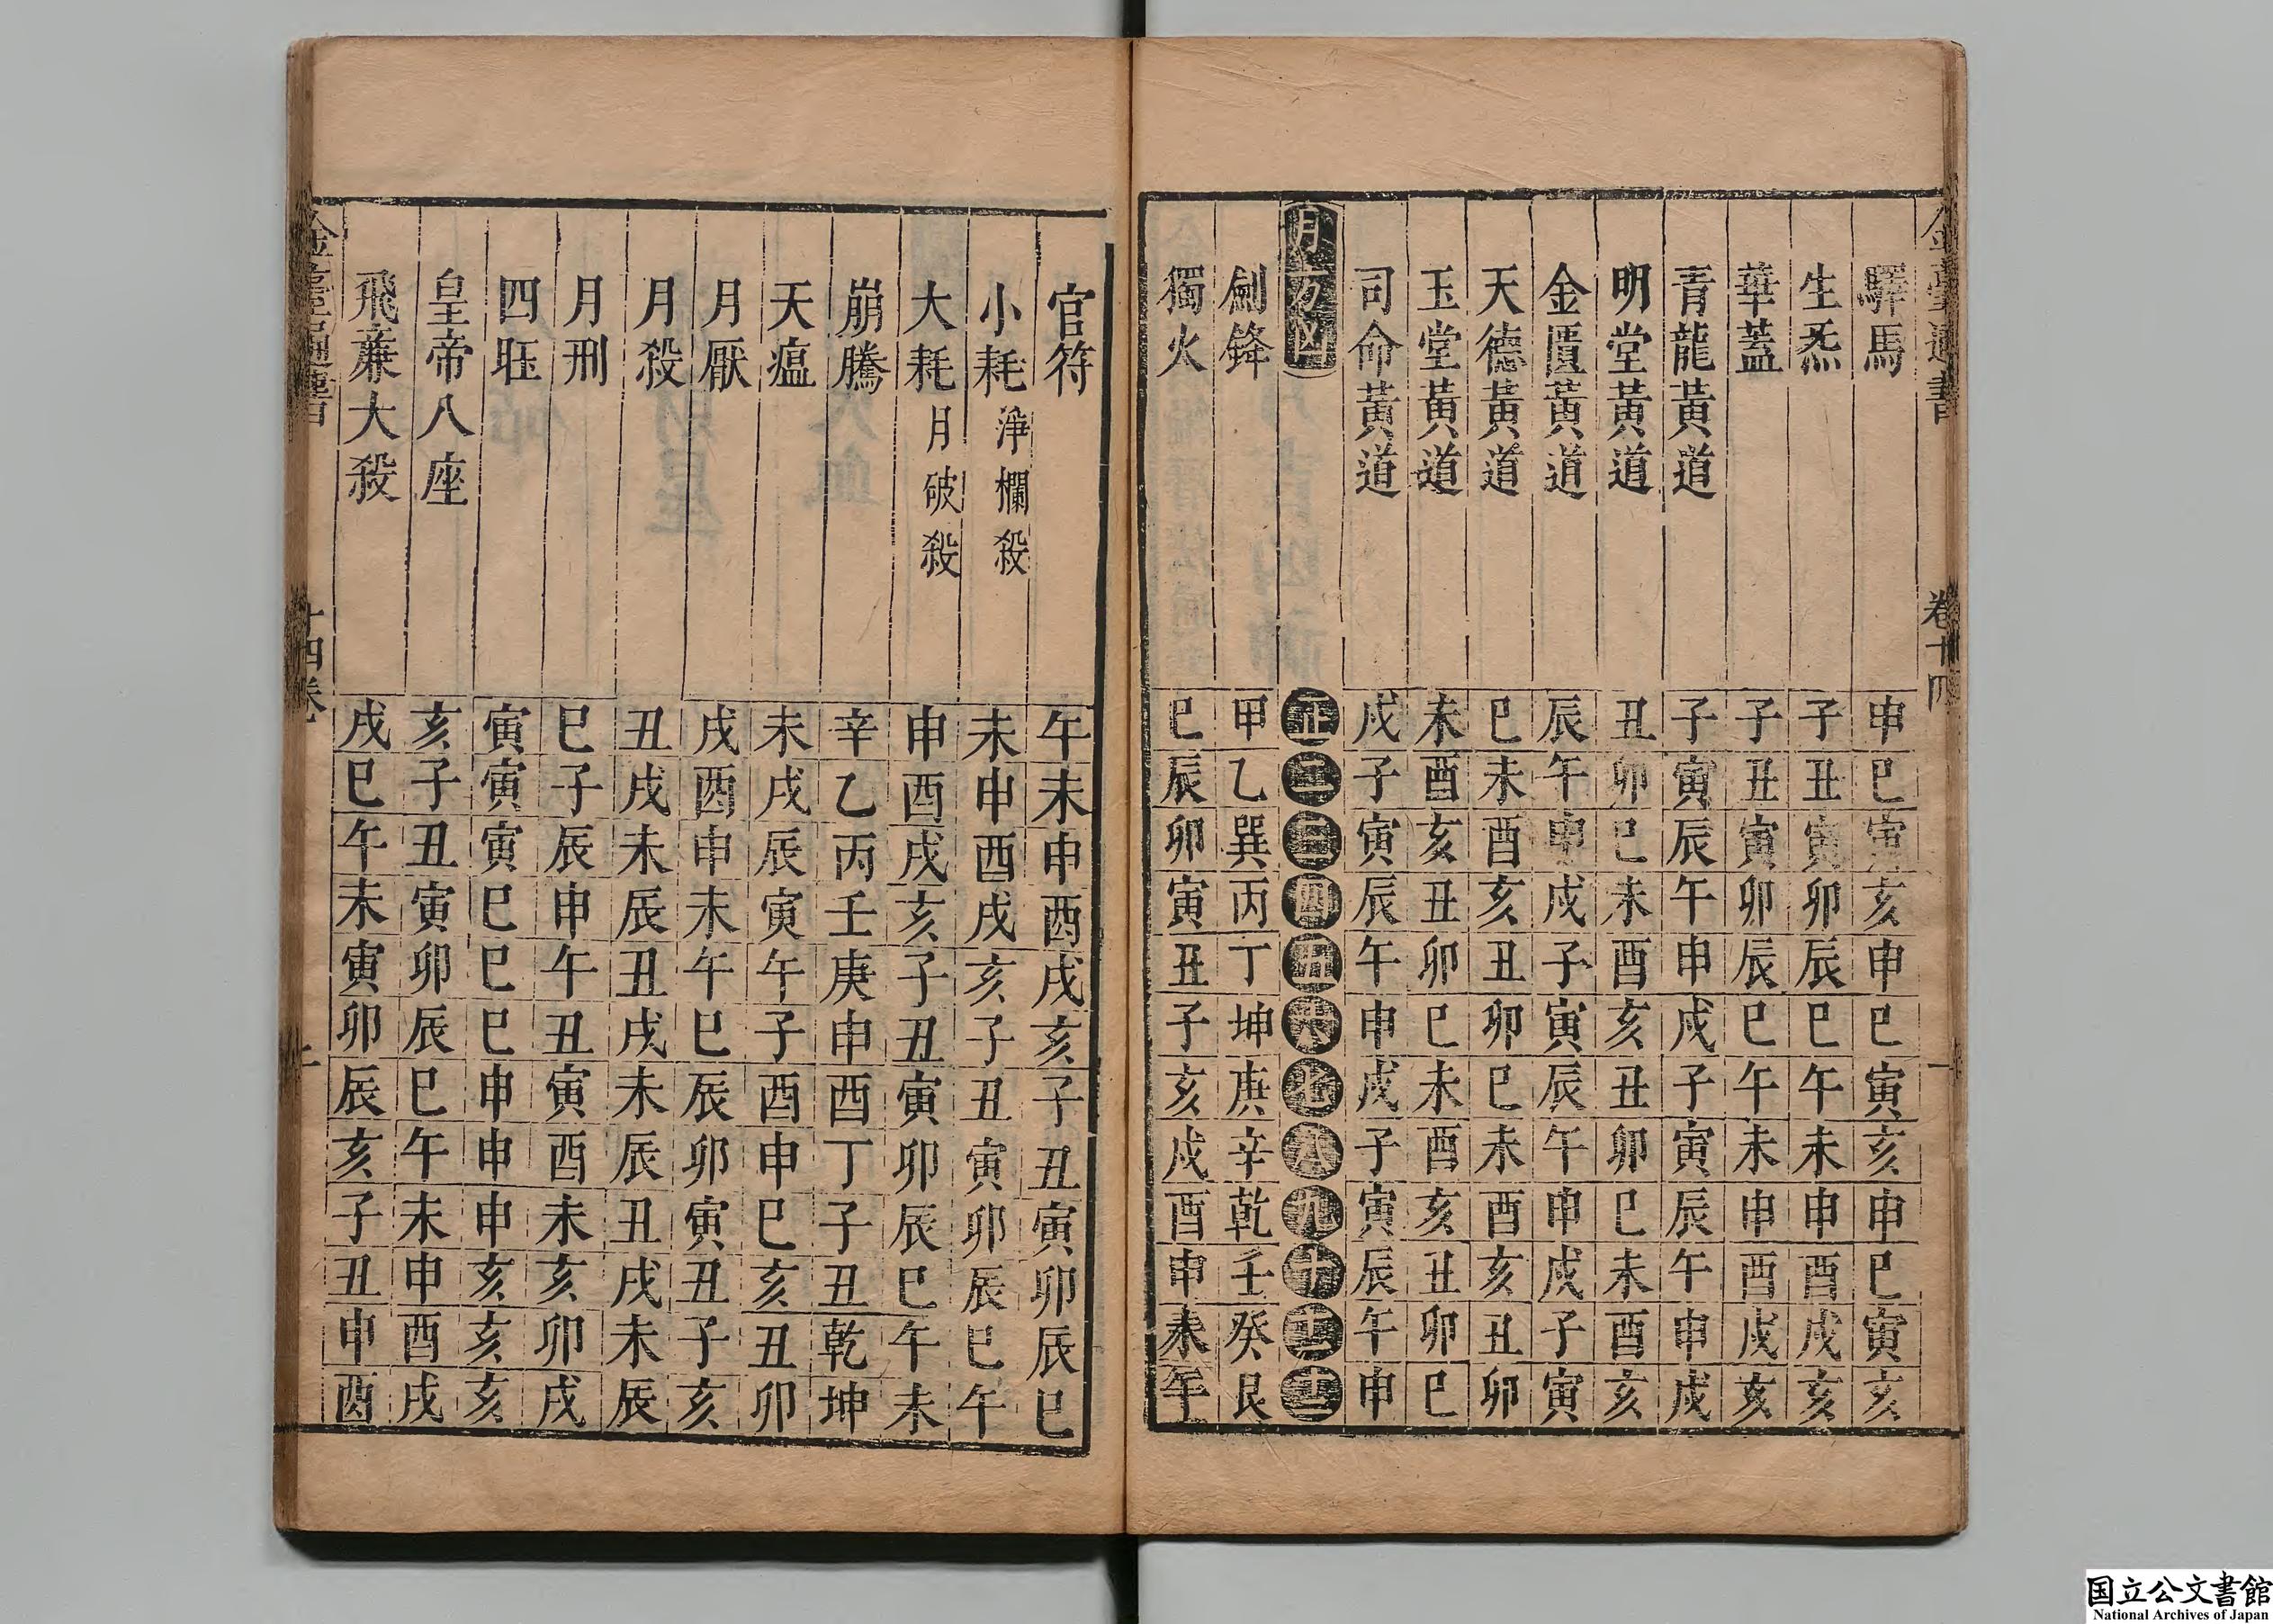 金臺通書 卷十四 一
驛馬 申巳寅亥申巳寅亥申巳寅亥
生炁 子丑寅卯辰巳午未申酉戌亥
華蓋 子丑寅卯辰巳午未申酉戌亥
青龍黃道 子寅辰午申戌子寅辰午申戌
明堂黃道 丑卯巳未酉亥丑卯巳未酉亥
金匱黃道 辰午申戌子寅辰午申戌子寅
天德黃道 巳未酉亥丑卯巳未酉亥丑卯
玉堂黃道 未酉亥丑卯巳未酉亥丑卯巳
司命黃道 戌子寅辰午申戌子寅辰午申
月方凶 正二三四五六七八九十十一十二
劍鋒 甲乙巽丙丁坤庚辛乾壬癸艮
獨火 巳辰卯寅丑子亥戌酉申未午
官符 午未申酉戌亥子丑寅卯辰巳
小耗 淨欄殺 未申酉戌亥子丑寅卯辰巳午
大耗 月破殺 申酉戌亥子丑寅卯辰巳午未
崩騰 辛乙丙壬庚申酉丁子丑乾坤
天瘟 未戌辰寅午子酉申巳亥丑卯
月厭 戌酉申未午巳辰卯寅丑子亥
月殺 丑戌未辰丑戌未辰丑戌未辰
月刑 巳子辰申午丑寅酉未亥卯戌
四 寅寅寅巳巳巳申申申亥亥亥
皇帝八座 亥子丑寅卯辰巳午未申酉戌
飛廉大殺 戌巳午未寅卯辰亥子丑申酉
十四卷
国立公文書館
National Archives of Japan